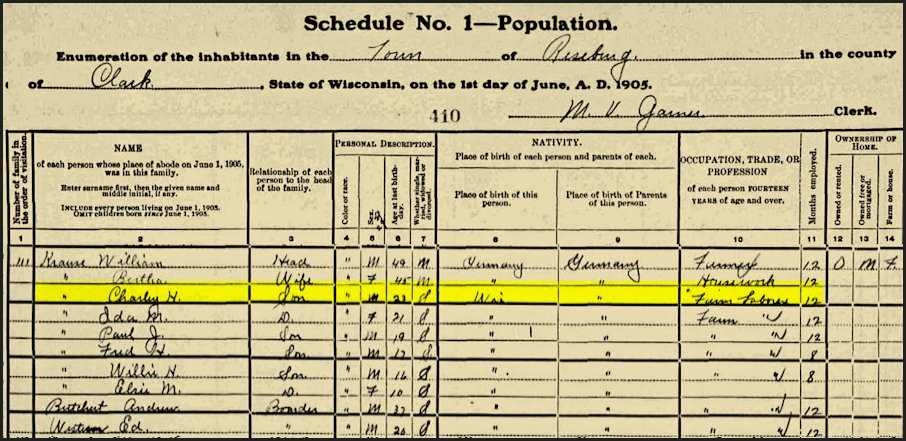 Schedule No. 1—Population.
Enumeration of the inhabitants in the Town of Reseburg, in the county
of Clark, State of Wisconsin, on the 1st day of June, A. D. 1905.
410 M. V. Clerk.
Number of family in the order of visitation.
NAME
of each person whose place of abode on June 1, 1905, was in this family.
Enter surname first, then the given name and middle initial, if any.
INCLUDE every person living on June 1, 1905.
OMIT children born since June 1, 1905.
Relationship of each person to the head of the family.
PERSONAL DESCRIPTION.
Color or race.
Sex.
Age at last birthday.
Whether single, married, widowed or divorced.
NATIVITY.
Place of birth of each person and parents of each.
Place of birth of this person.
Place of birth of Parents of this person.
OCCUPATION, TRADE, OR PROFESSION
of each person FOURTEEN YEARS of age and over.
Months employed.
OWNERSHIP OF HOME.
Owned or rented.
Owned free or mortgaged.
Farm or house.
1 2 3 4 5 6 7 8 9 10 11 12 13 14
111 Krause William Head " M 49 M Germany Germany Farmer 12 O M F
" Bertha Wife " F 45 M " " Housework 12
" Charley H. Son " M 23 S Wis " Farm Laborer 12
" Ida M. D. " F 21 S " " Farm " 12
" Paul J. Son " M 19 S " " " " 12
" Fred H. Son " M 17 S " " " " 8
" Willie H. Son " M 16 S " " " " 8
" Elsie M. D. " F 10 S " "
Andrew Boarder " M 37 S " " " " 12
Ed. " " M 20 S " " " " 12